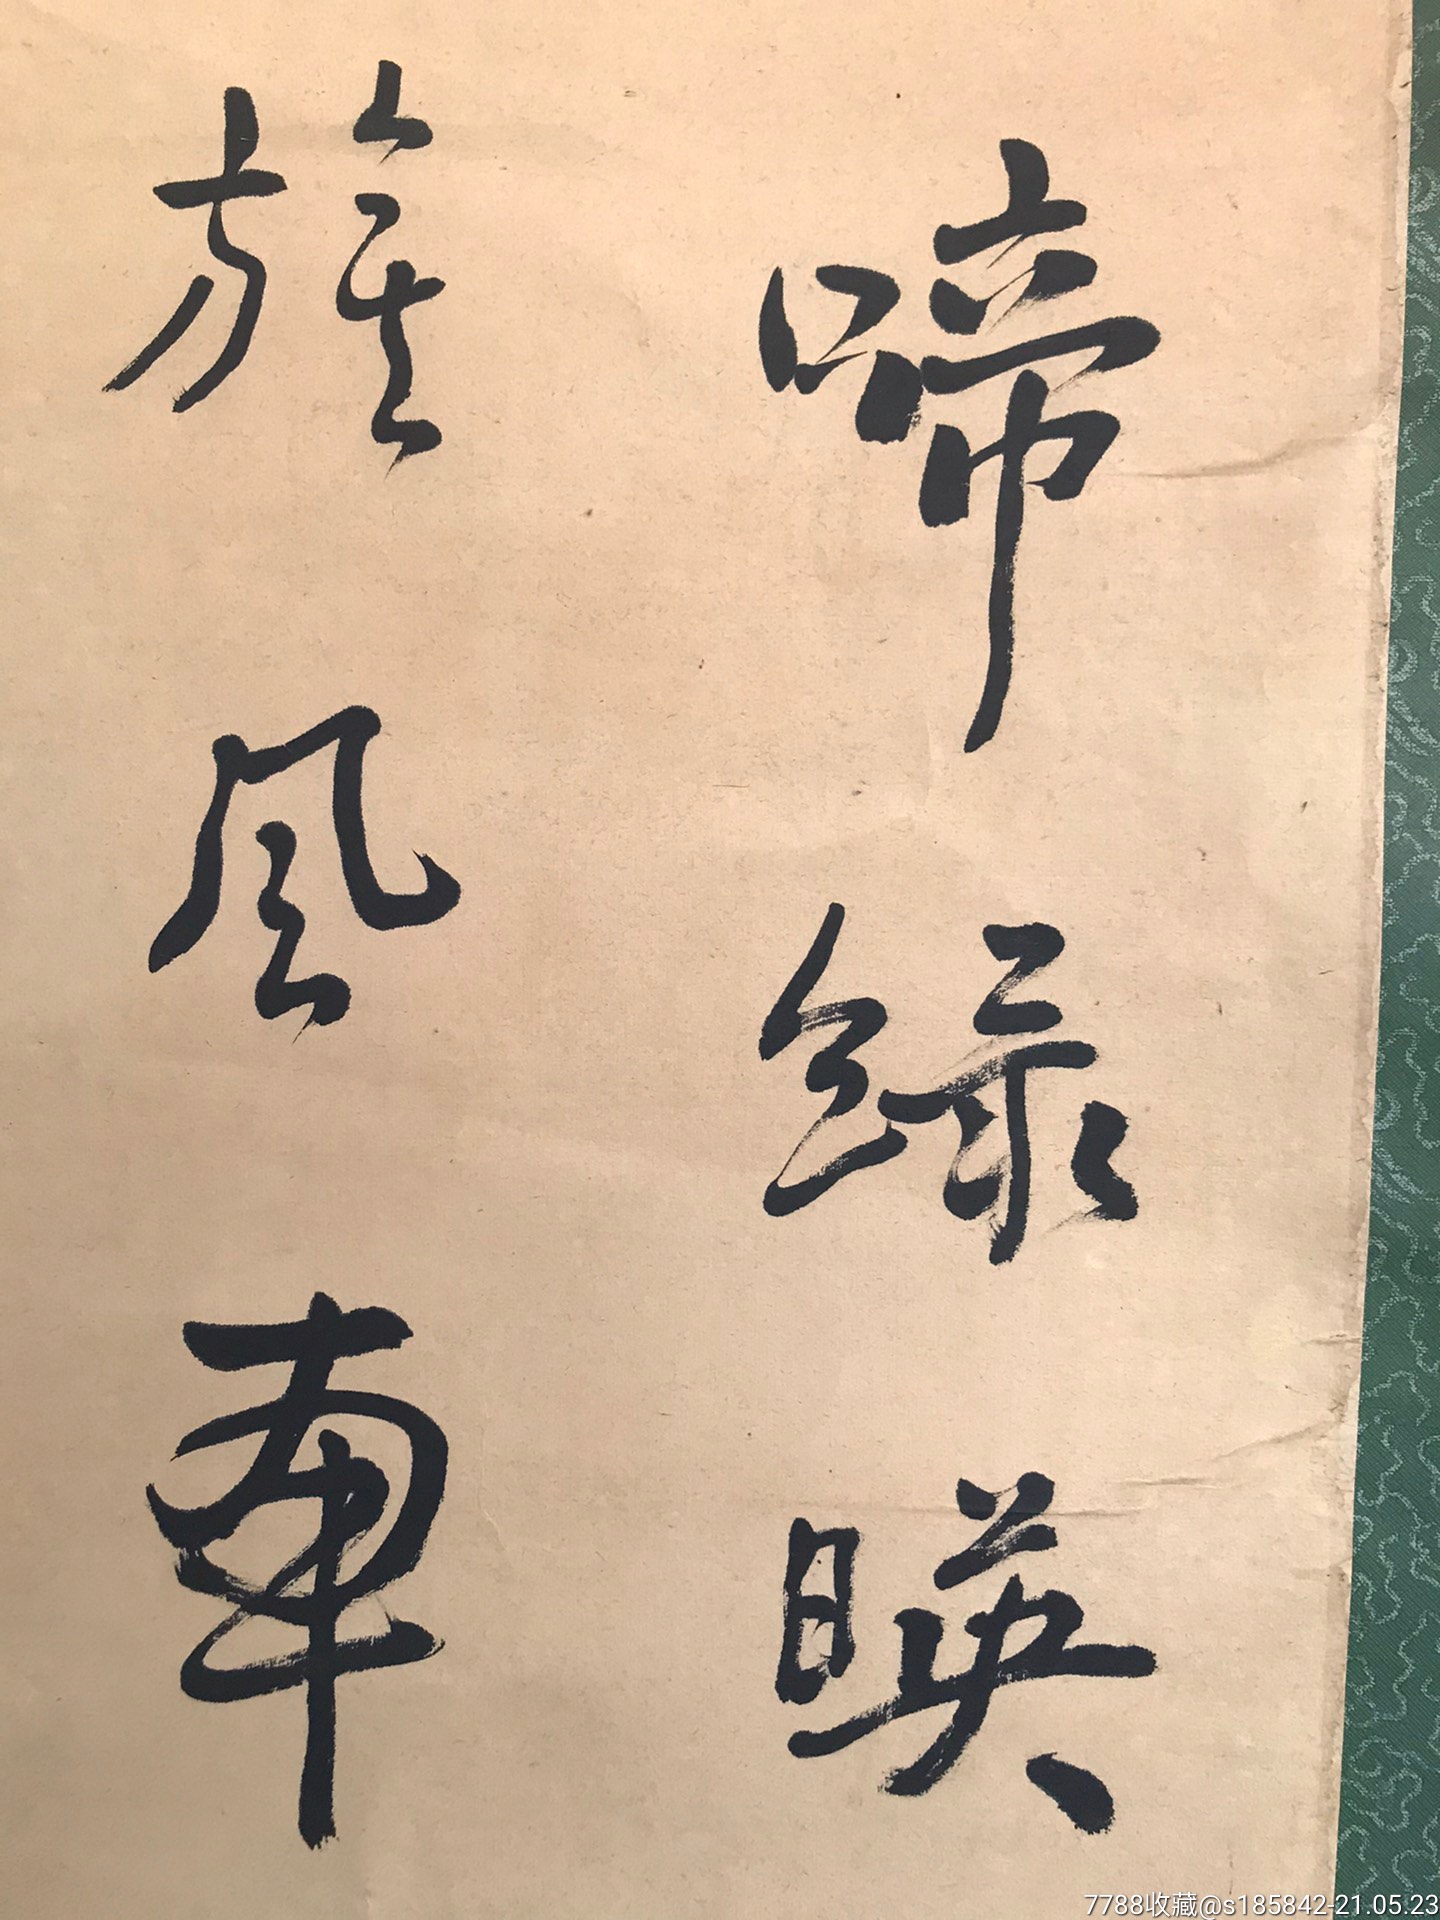 啼緑暎
旗風車
7788收藏@s185842-21.05.23